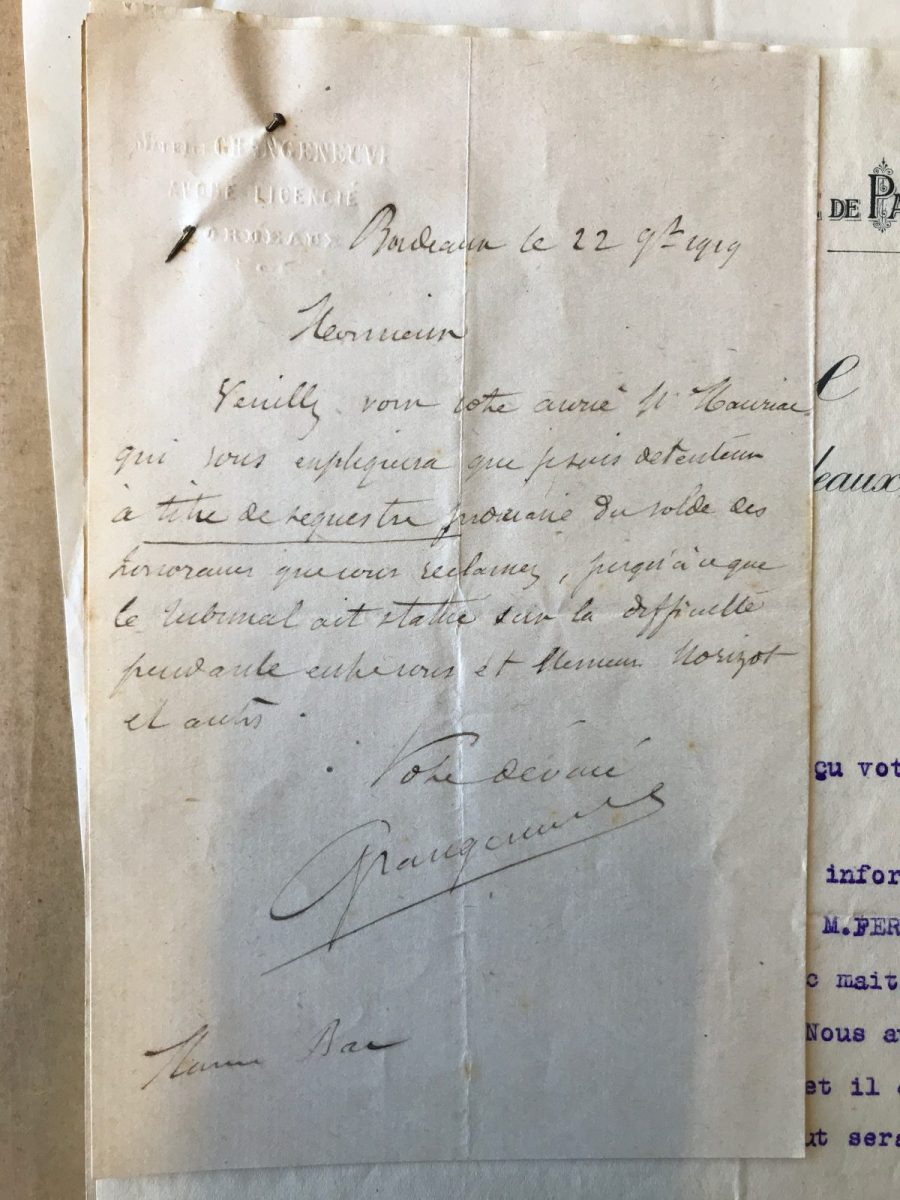 MAURICE GRANGENEUVE
AVOUÉ LICENCIÉ
BORDEAUX
Bordeaux le 22 9bre 1919
Monsieur
Veuillez voir votre avoué Mr Mauriac
qui vous expliquera que je suis detenteur
à titre de sequestre du solde des
honoraires que vous réclamez, jusqu'à ce que
le Tribunal ait statué sur la difficulté
pendante entre vous et Monsieur Norizot
et autres.
Votre dévoué
Grangeneuve
Bac
DE PA
e
deaux
çu vot
infor
M.FER
c mait
Nous av
et il
ut sera